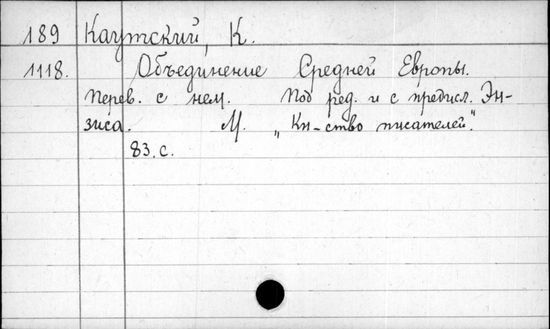 189 Каутский, К.
1118. Объединение Средней Европы.
Перев. с нем. Под ред. и с предисл. Эн-
зиса. М. „Кн-ство писателей".
83.с.